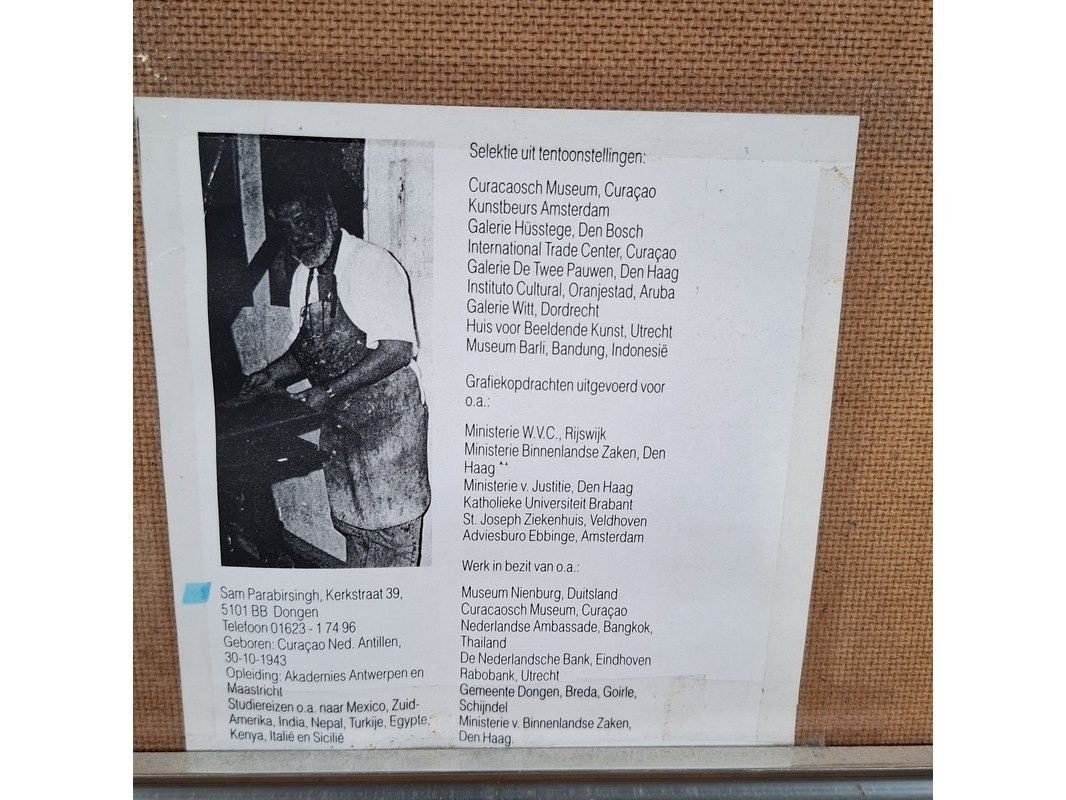 Selektie uit tentoonstellingen:
Curacaosch Museum, Curaçao
Kunstbeurs Amsterdam
Galerie Hüsstege, Den Bosch
International Trade Center, Curaçao
Galerie De Twee Pauwen, Den Haag
Instituto Cultural, Oranjestad, Aruba
Galerie Witt, Dordrecht
Huis voor Beeldende Kunst, Utrecht
Museum Barli, Bandung, Indonesië
Grafiekopdrachten uitgevoerd voor
o.a.:
Ministerie W.V.C., Rijswijk
Ministerie Binnenlandse Zaken, Den
Haag
Ministerie v. Justitie, Den Haag
Katholieke Universiteit Brabant
St. Joseph Ziekenhuis, Veldhoven
Adviesburo Ebbinge, Amsterdam
Werk in bezit van o.a.:
Museum Nienburg, Duitsland
Curacaosch Museum, Curaçao
Nederlandse Ambassade, Bangkok,
Thailand
De Nederlandsche Bank, Eindhoven
Rabobank, Utrecht
Gemeente Dongen, Breda, Goirle,
Schijndel
Ministerie v. Binnenlandse Zaken,
Den Haag.
Sam Parabirsingh, Kerkstraat 39,
5101 BB Dongen
Telefoon 01623 - 1 74 96
Geboren: Curaçao Ned. Antillen,
30-10-1943
Opleiding: Akademies Antwerpen en
Maastricht
Studiereizen o.a. naar Mexico, Zuid-
Amerika, India, Nepal, Turkije, Egypte,
Kenya, Italië en Sicilië